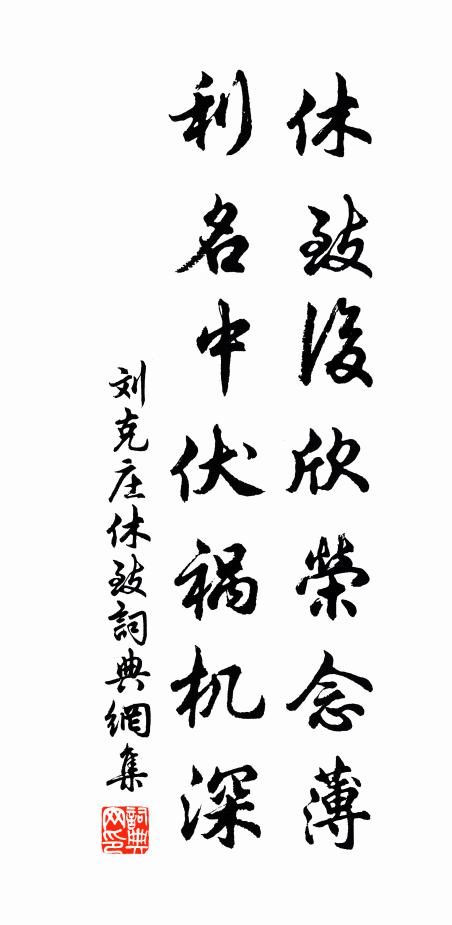 休致後欣榮念薄
利名中伏祸机深
刘克庄休致詞典網集
詞典网印